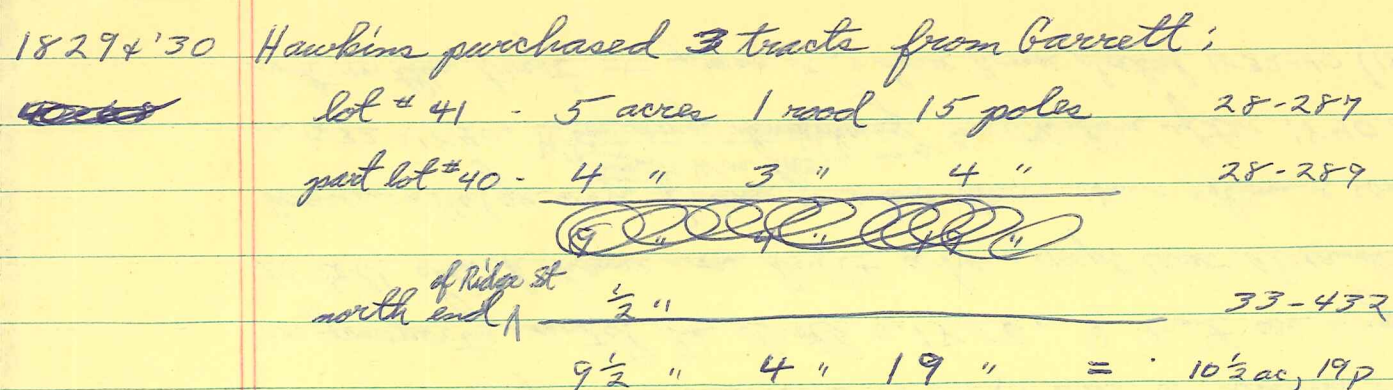 1829 & '30 Hawkins purchased 3 tracts from Garrett;
lot # 41 - 5 acres 1 rood 15 poles 28-287
part lot #40 - 4 " 3 " 4 " 28-289
9 " 4 " 19 "
of Ridge St
north end ^ 1/2 " 33-432
9 1/2 " 4 " 19 " = 10 1/2 ac, 19p